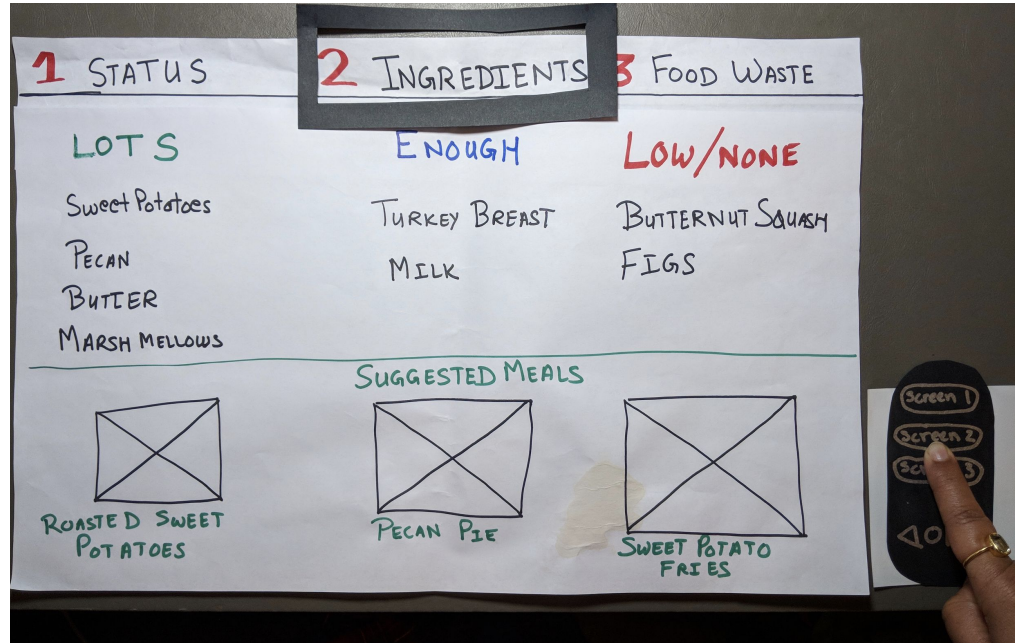 1 STATUS
2 INGREDIENTS
3 FOOD WASTE
LOTS
Sweet Potatoes
PECAN
BUTTER
MARSH MELLOWS
ENOUGH
TURKEY BREAST
MILK
LOW/NONE
BUTTERNUT SQUASH
FIGS
SUGGESTED MEALS
ROASTED SWEET
POTATOES
PECAN PIE
SWEET POTATO
FRIES
Screen 1
Screen 2